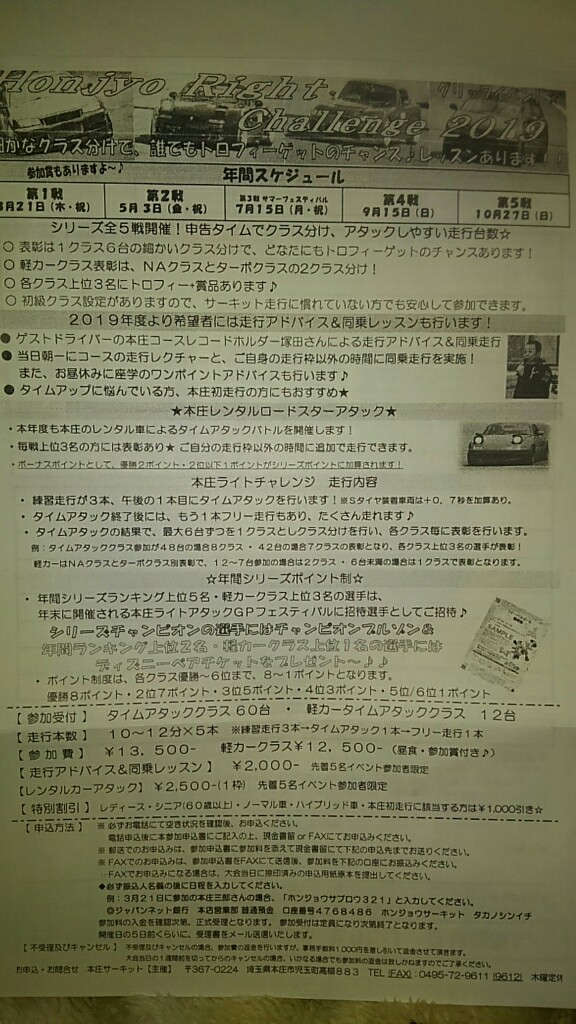 Honjyo Right
Challenge 2019
かなクラス分けで、誰でもトロフィーゲットのチャンス♪レッスンあります！！
参加賞もありますよ～♪
年間スケジュール
第1戦
3月21日（木・祝）
第2戦
5月3日（金・祝）
第3戦 サマーフェスティバル
7月15日（月・祝）
第4戦
9月15日（日）
第5戦
10月27日（日）
シリーズ全5戦開催！申告タイムでクラス分け、アタックしやすい走行台数☆
○ 表彰は1クラス6台の細かいクラス分けで、どなたにもトロフィーゲットのチャンスあります！
○ 軽カークラス表彰は、NAクラスとターボクラスの2クラス分け！
○ 各クラス上位3名にトロフィー+賞品あります♪
○ 初級クラス設定がありますので、サーキット走行に慣れていない方でも安心して参加できます。
2019年度より希望者には走行アドバイス&同乗レッスンも行います！
● ゲストドライバーの本庄コースレコードホルダー塚田さんによる走行アドバイス&同乗走行
● 当日朝一にコースの走行レクチャーと、ご自身の走行枠以外の時間に同乗走行を実施！
また、お昼休みに座学のワンポイントアドバイスも行います♪
● タイムアップに悩んでいる方、本庄初走行の方にもおすすめ★
★本庄レンタルロードスターアタック★
・本年度も本庄のレンタル車によるタイムアタックバトルを開催します！
・毎戦上位3名の方には表彰あり★ ご自分の走行枠以外の時間に追加で走行できます。
・ボーナスポイントとして、優勝2ポイント・2位以下1ポイントがシリーズポイントに加算されます！
本庄ライトチャレンジ 走行内容
・ 練習走行が3本、午後の1本目にタイムアタックを行います！※Sタイヤ装着車両は+0.7秒を加算あり。
・ タイムアタック終了後には、もう1本フリー走行もあり、たくさん走れます♪
・ タイムアタックの結果で、最大6台ずつを1クラスとしクラス分けを行い、各クラス毎に表彰を行います。
例：タイムアタッククラス参加が48台の場合8クラス・42台の場合7クラスの表彰となり、各クラス上位3名の選手が表彰！
軽カーはNAクラスとターボクラス別表彰で、12～7台参加の場合は2クラス・6台未満の場合は1クラスで表彰となります。
☆年間シリーズポイント制☆
・ 年間シリーズランキング上位5名・軽カークラス上位3名の選手は、
年末に開催される本庄ライトアタックGPフェスティバルに招待選手としてご招待♪
シリーズチャンピオンの選手にはチャンピオンブルゾン&
年間ランキング上位2名・軽カークラス上位1名の選手には
ディズニーペアチケットをプレゼント～♪♪
SAMPLE
・ ポイント制度は、各クラス優勝～6位まで、8～1ポイントとなります。
優勝8ポイント・2位7ポイント・3位5ポイント・4位3ポイント・5位/6位1ポイント
【 参加受付 】 タイムアタッククラス 60台 ・ 軽カータイムアタッククラス 12台
【 走行本数 】 10～12分×5本 ※練習走行3本→タイムアタック1本→フリー走行1本
【 参 加 費 】 ¥13,500- 軽カークラス¥12,500-（昼食・参加賞付き♪）
【 走行アドバイス&同乗レッスン 】 ¥2,000- 先着5名イベント参加者限定
【レンタルカーアタック】 ¥2,500-(1枠) 先着5名イベント参加者限定
【 特別割引 】 レディース・シニア(60歳以上)・ノーマル車・ハイブリッド車・本庄初走行に該当する方は¥1,000引き☆
【 申込方法 】 ※ 必ずお電話にて空き状況を確認後、お申込ください。
電話申込後に本参加申込書にご記入の上、現金書留 or FAXにてお申込みください。
※ 郵送でのお申込みは、参加申込書に参加料を添えて現金書留にて下記の申込先までお送りください。
※ FAXでのお申込みは、参加申込書をFAXにて送信後、参加料を下記の口座にお振込みください。
FAXでお申込みになる場合は、大会当日に捺印済みの申込用紙原本を提出してください。
◆必ず振込人名義の後に日程を入力してください。
例：3月21日に参加の本庄三郎さんの場合、「ホンジョウサブロウ321」と入力してください。
◎ジャパンネット銀行 本店営業部 普通預金 口座番号4768486 ホンジョウサーキット タカノシンイチ
参加料の入金を確認次第、正式受理となります。 参加受付は定員になり次第終了となります。
開催日の5日前くらいに、受理書をメール送信いたします。
【 不受理及びキャンセル 】 不受理及びキャンセルの場合、参加費の返金を行いますが、事務手数料1,000円を差し引いて返金させて頂きます。
大会当日の1週間前を切ってからのキャンセルの場合、いかなる場合でも参加料の返金は致しかねますのでご了承ください。
お申込・お問合せ 本庄サーキット【主催】 〒367-0224 埼玉県本庄市児玉町高柳883 TEL (FAX)：0495-72-9611 (9612) 木曜定休